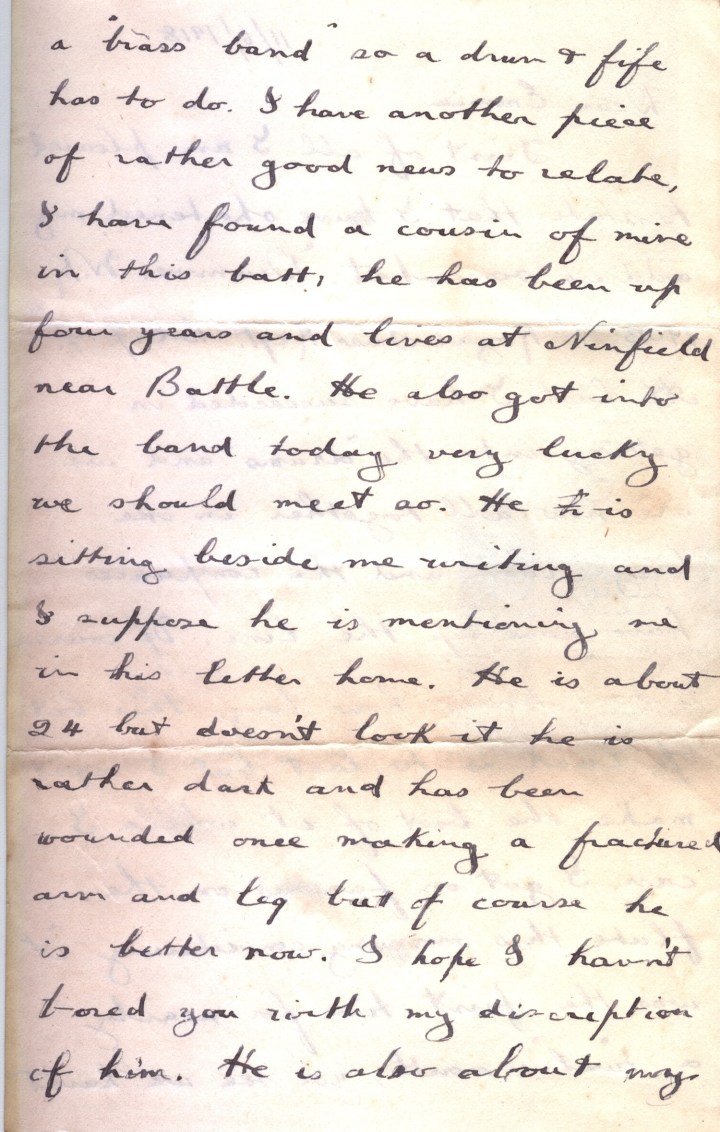 a "brass band" so a drum & fife
has to do. I have another piece
of rather good news to relate,
I have found a cousin of mine
in this batt, he has been up
four years and lives at Ninfield
near Battle. He also got into
the band today very lucky
we should meet so. He is
sitting beside me writing and
I suppose he is mentioning me
in his letter home. He is about
24 but doesn't look it he is
rather dark and has been
wounded once making a fractured
arm and leg but of course he
is better now. I hope I havn't
bored you with my discription
of him. He is also about my